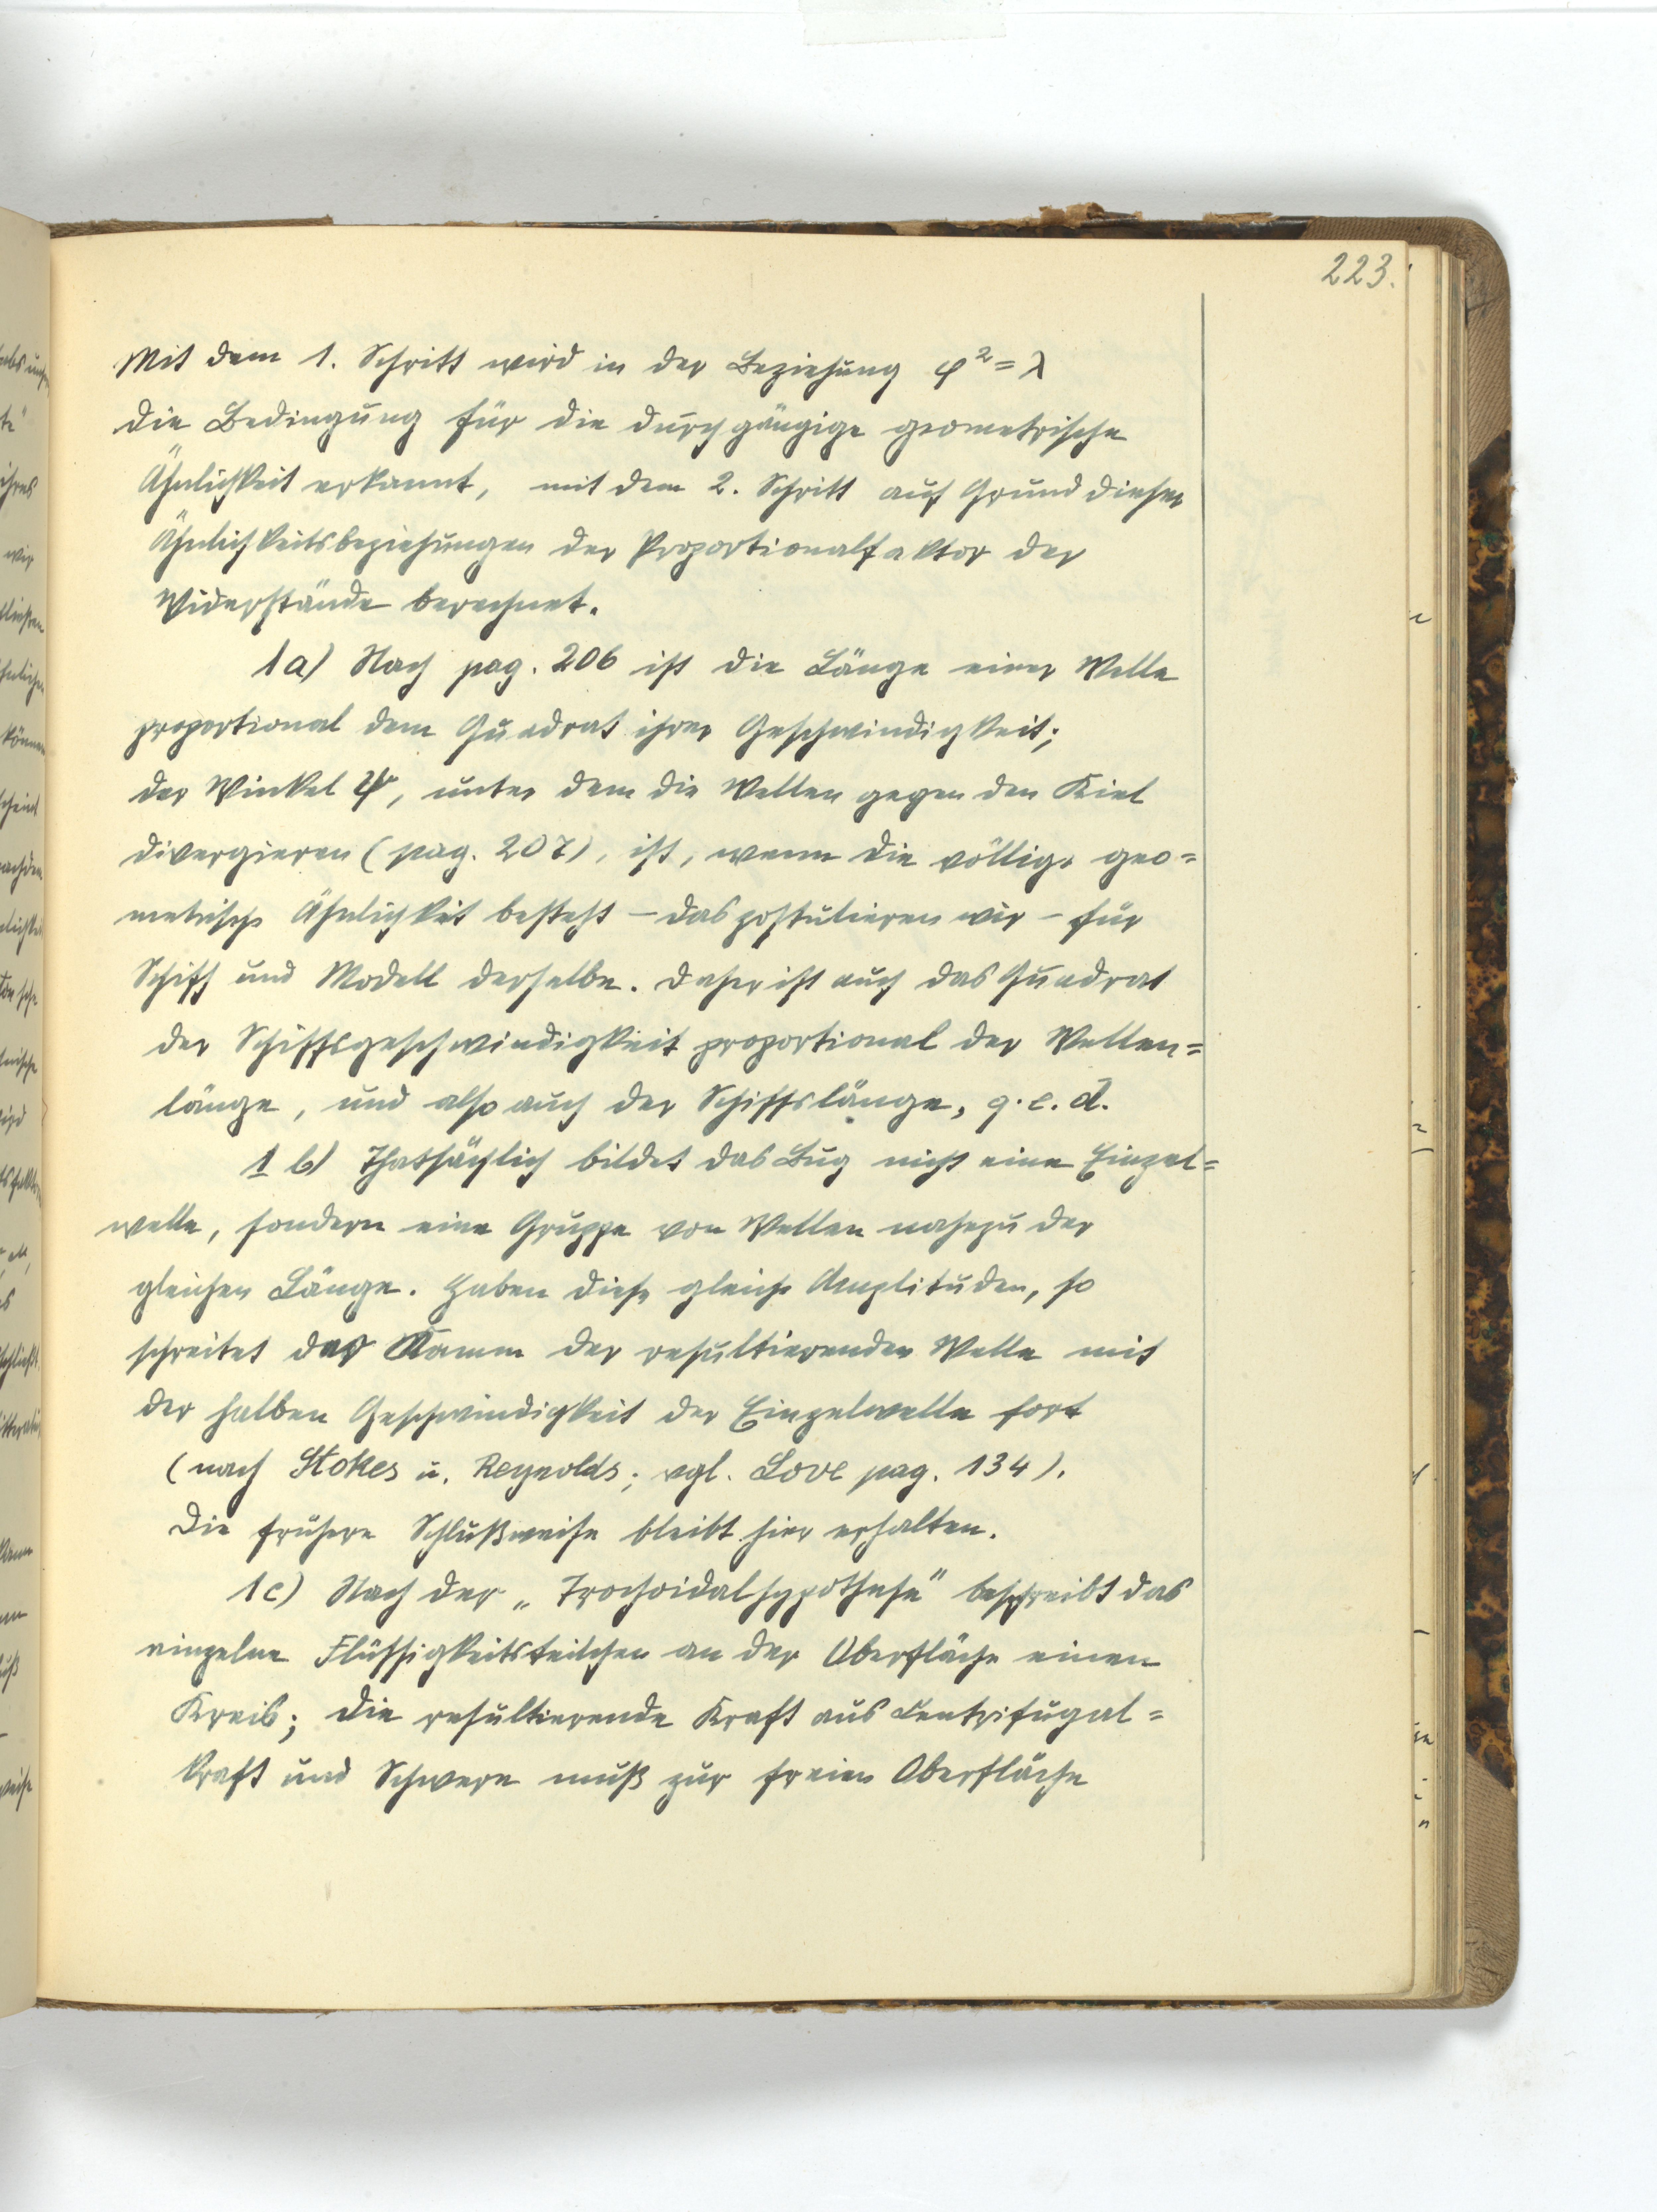 223.
Mit dem 1. Schritt wird in der Beziehung φ² = λ
die Bedingung für die durchgängige geometrische
Ähnlichkeit erkannt, mit dem 2. Schritt auf Grund dieser
Ähnlichkeitsbeziehungen der Proportionalfaktor der
Widerstände berechnet.
1a) Nach pag. 206 ist die Länge einer Welle
proportional dem Quadrat ihrer Geschwindigkeit;
der Winkel ψ, unter dem die Wellen gegen den Kiel
divergieren (pag. 207), ist, wenn die völlige geo=
metrische Ähnlichkeit besteht – das postulieren wir – für
Schiff und Modell derselbe. Daher ist auch das Quadrat
der Schiffsgeschwindigkeit proportional der Wellen=
länge, und also auch der Schiffslänge, q. e. d.
1 b) Thatsächlich bildet das Bug nicht eine Einzel=
welle, sondern eine Gruppe von Wellen nahezu der
gleichen Länge. Haben diese gleiche Amplituden, so
schreitet der Kamm der resultierenden Welle mit
der halben Geschwindigkeit der Einzelwelle fort
(nach Stokes u. Reynolds; vgl. Love pag. 134).
Die frühere Schlußweise bleibt hier erhalten.
1c) Nach der „Trochoidalhypothese" beschreibt das
einzelne Flüssigkeitsteilchen an der Oberfläche einen
Kreis; die resultierende Kraft aus Centrifugal=
kraft und Schwere muß zur freien Oberfläche